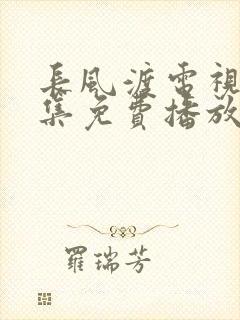 長風渡電視
集免費播放
羅瑞芳